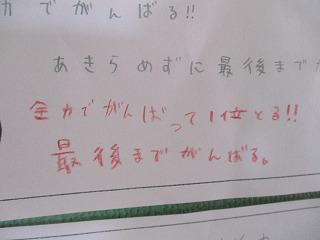 力でがんばる!!
あきらめずに最後までが
全力でがんばって1位とる!!
最後までがんばる。